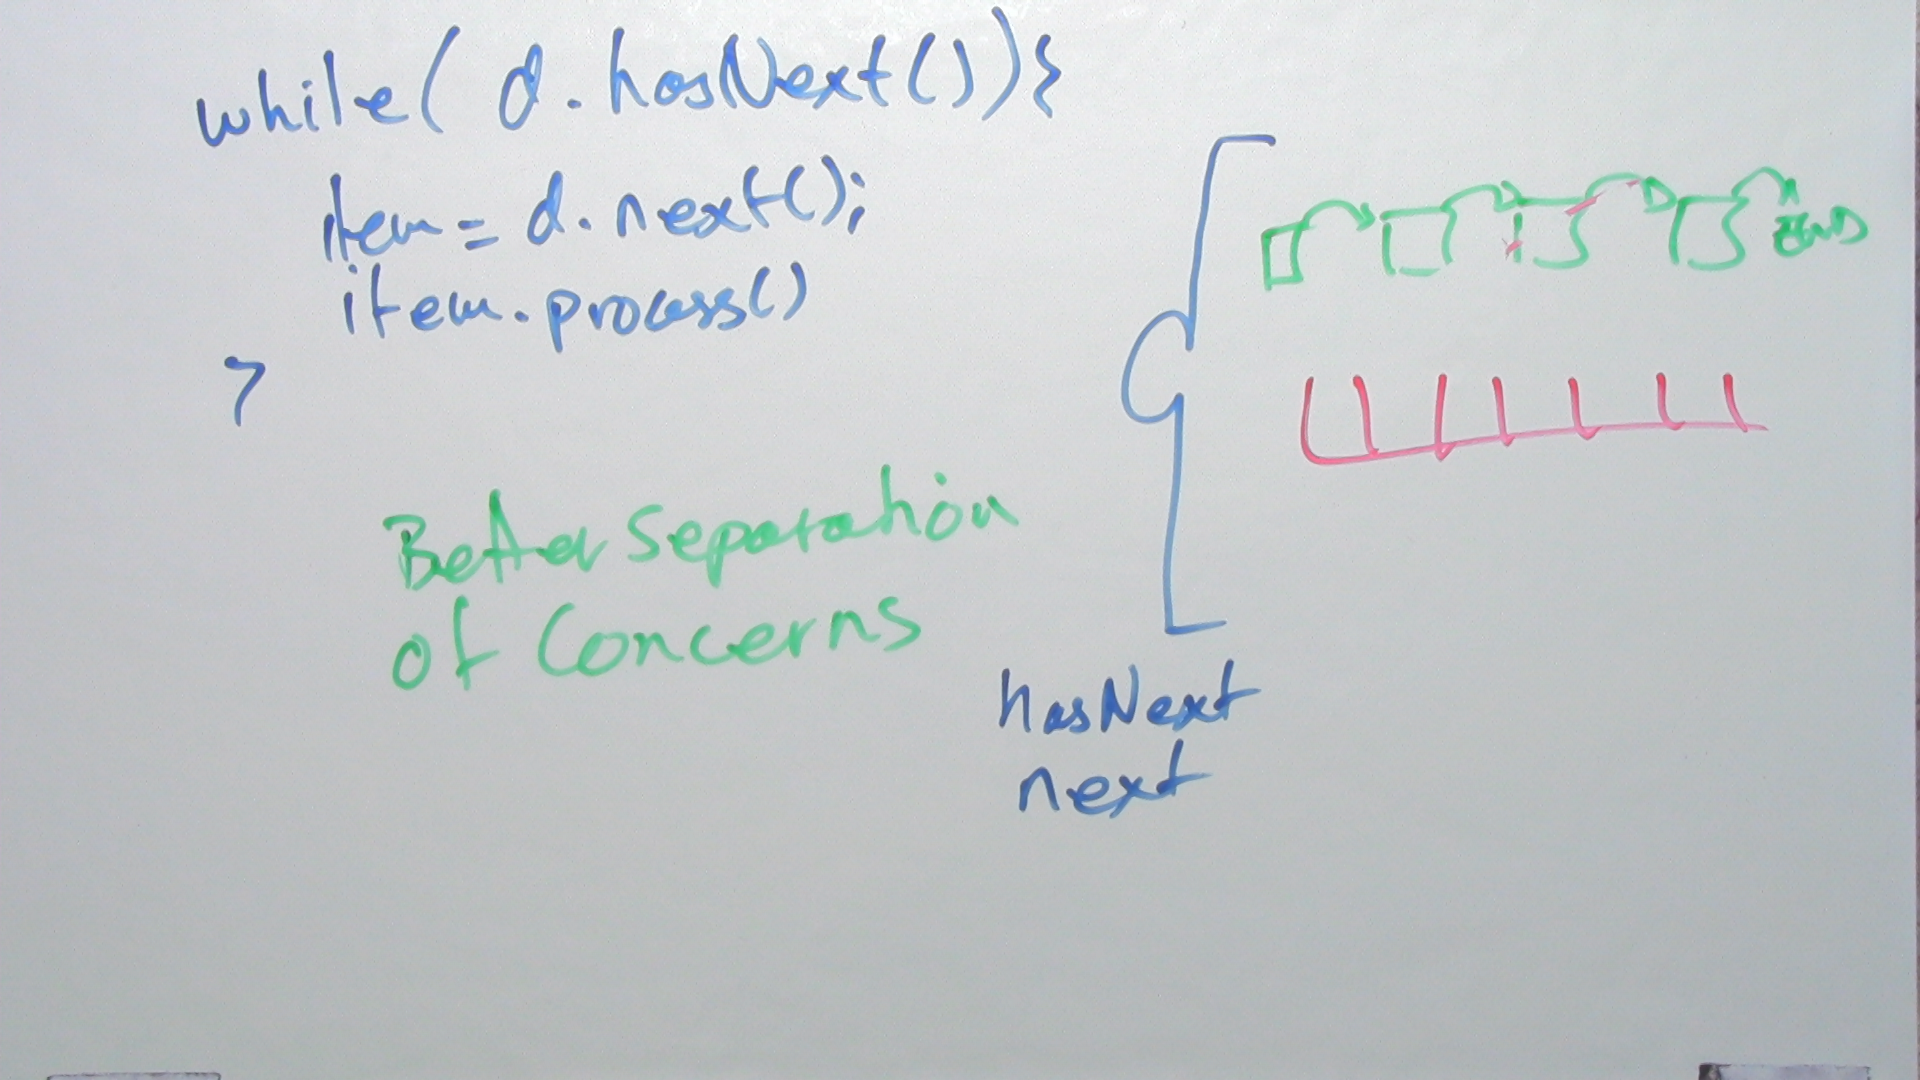 while( d.hasNext()){
item = d.next();
item.process()
}
Better separation
of Concerns
hasNext
next
END